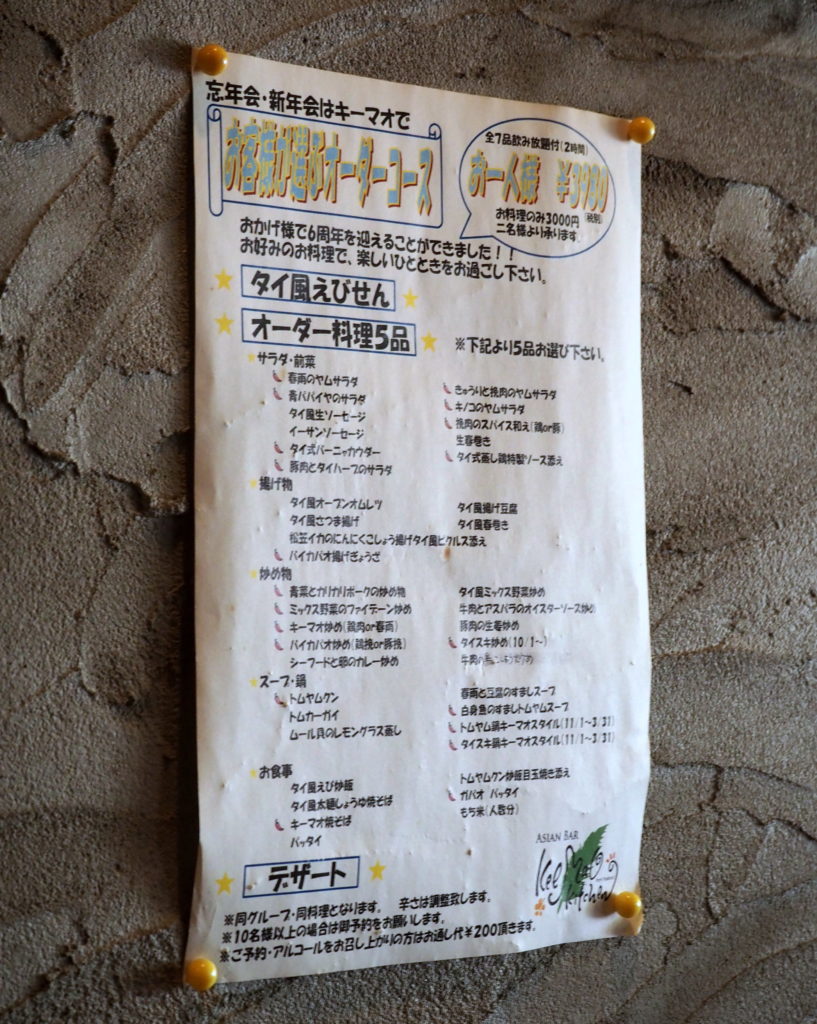 忘年会・新年会はキーマオで
お客様が選ぶオーダーコース
全7品飲み放題付(2時間)
お一人様 ¥3980
(税別)
お料理のみ3000円
二名様より承ります
おかげ様で6周年を迎えることができました！！
お好みのお料理で、楽しいひとときをお過ごし下さい。
タイ風えびせん
オーダー料理5品
※下記より5品お選び下さい。
サラダ・前菜
春雨のヤムサラダ
青パパイヤのサラダ
タイ風生ソーセージ
イーサンソーセージ
タイ式バーニャカウダー
豚肉とタイハーブのサラダ
きゅうりと挽肉のヤムサラダ
キノコのヤムサラダ
挽肉のスパイス和え(鶏or豚)
生春巻き
タイ式蒸し鶏特製ソース添え
揚げ物
タイ風オープンオムレツ
タイ風さつま揚げ
松笠イカのにんにくこしょう揚げタイ風ピクルス添え
バイカパオ揚げぎょうざ
タイ風揚げ豆腐
タイ風春巻き
炒め物
青菜とカリカリポークの炒め物
ミックス野菜のファイデーン炒め
キーマオ炒め(鶏肉or春雨)
バイカパオ炒め(鶏挽or豚挽)
シーフードと卵のカレー炒め
タイ風ミックス野菜炒め
牛肉とアスパラのオイスターソース炒め
豚肉の生姜炒め
タイスキ炒め(10/1～)
牛肉の
スープ・鍋
トムヤムクン
トムカーガイ
ムール貝のレモングラス蒸し
春雨と豆腐のすましスープ
白身魚のすましトムヤムスープ
トムヤム鍋キーマオスタイル(11/1～3/31)
タイスキ鍋キーマオスタイル(11/1～3/31)
お食事
タイ風えび炒飯
タイ風太麺しょうゆ焼そば
キーマオ焼そば
パッタイ
トムヤムクン炒飯目玉焼き添え
ガパオ パッタイ
もち米(人数分)
デザート
ASIAN BAR
Kee Mao
kitchen
※同グループ・同料理となります。 辛さは調整致します。
※10名様以上の場合は御予約をお願いします。
※ご予約・アルコールをお召し上がりの方はお通し代¥200頂きます。